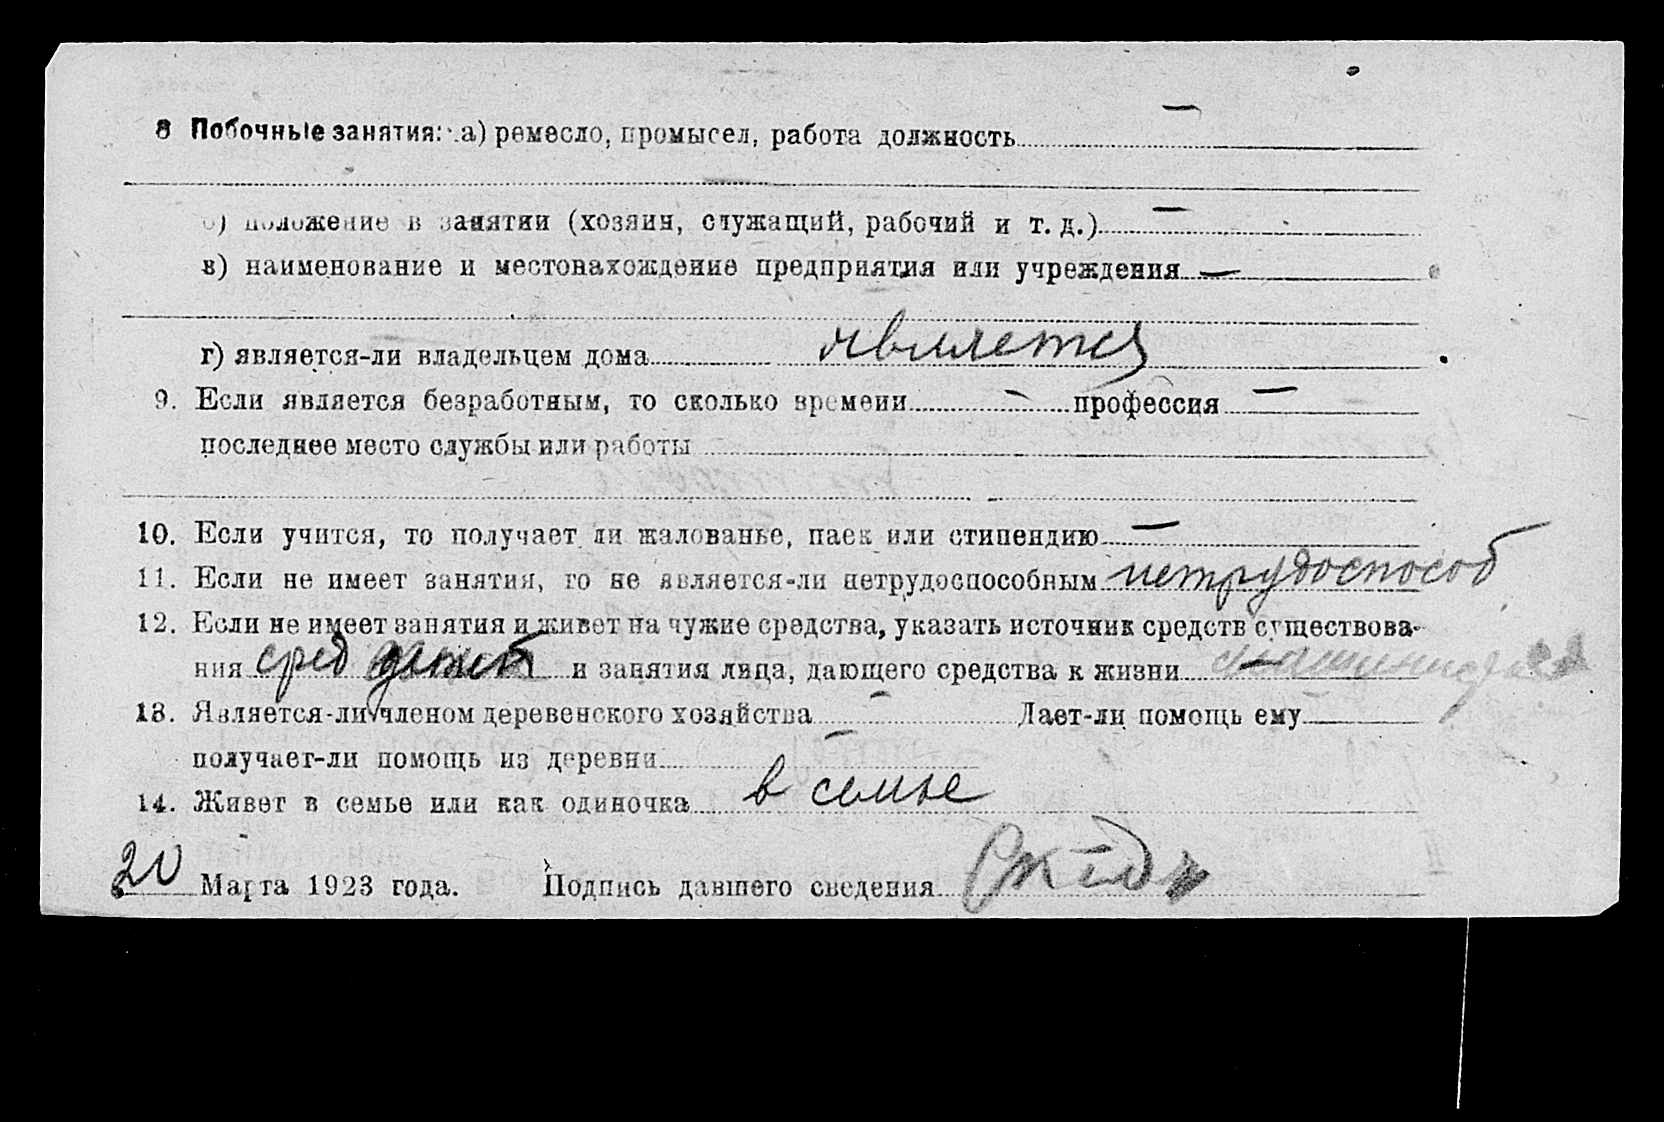 8 Побочные занятия: а) ремесло, промысел, работа должность —
б) положение в занятии (хозяин, служащий, рабочий и т. д.) —
в) наименование и местонахождение предприятия или учреждения —
г) является-ли владельцем дома является
9. Если является безработным, то сколько времени — профессия —
последнее место службы или работы
10. Если учится, то получает ли жалованье, паек или стипендию —
11. Если не имеет занятия, то не является-ли нетрудоспособным нетрудоспособ
12. Если не имеет занятия и живет на чужие средства, указать источник средств существова-
ния сред детей и занятия лица, дающего средства к жизни
13. Является-ли членом деревенского хозяйства — Дает-ли помощь ему
получает-ли помощь из деревни —
14. Живет в семье или как одиночка в семье
20 Марта 1923 года. Подпись давшего сведения